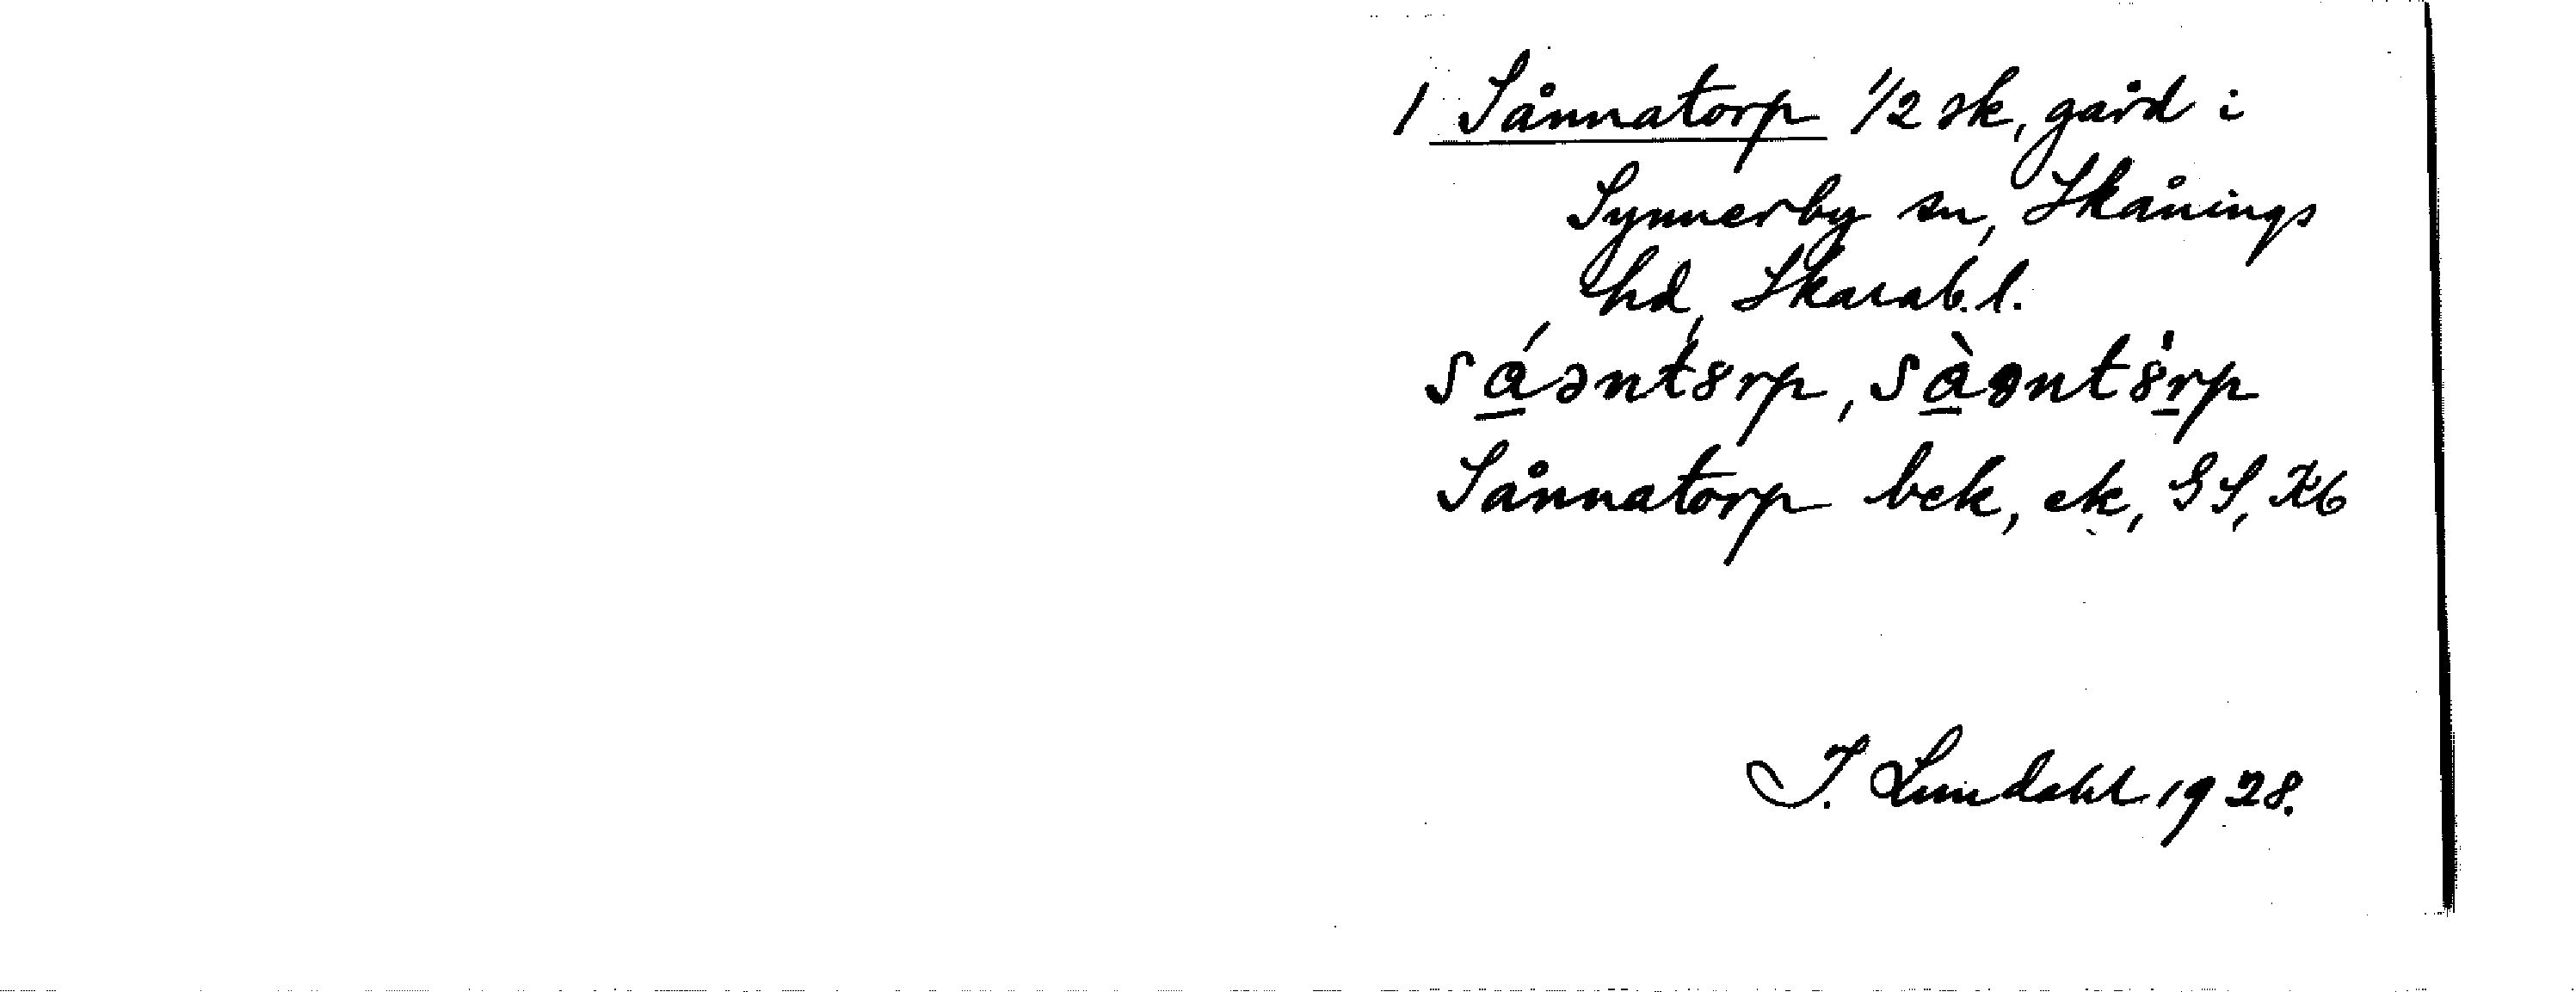 1 Sånnatorp 1/2 sk, gård i
Synnerby sn, Skånings
hd, Skarab.l.
sáənt8rp, sàənt8̍rp
Sånnatorp bek, ek, GS, Kb
I. Lundahl 1928.